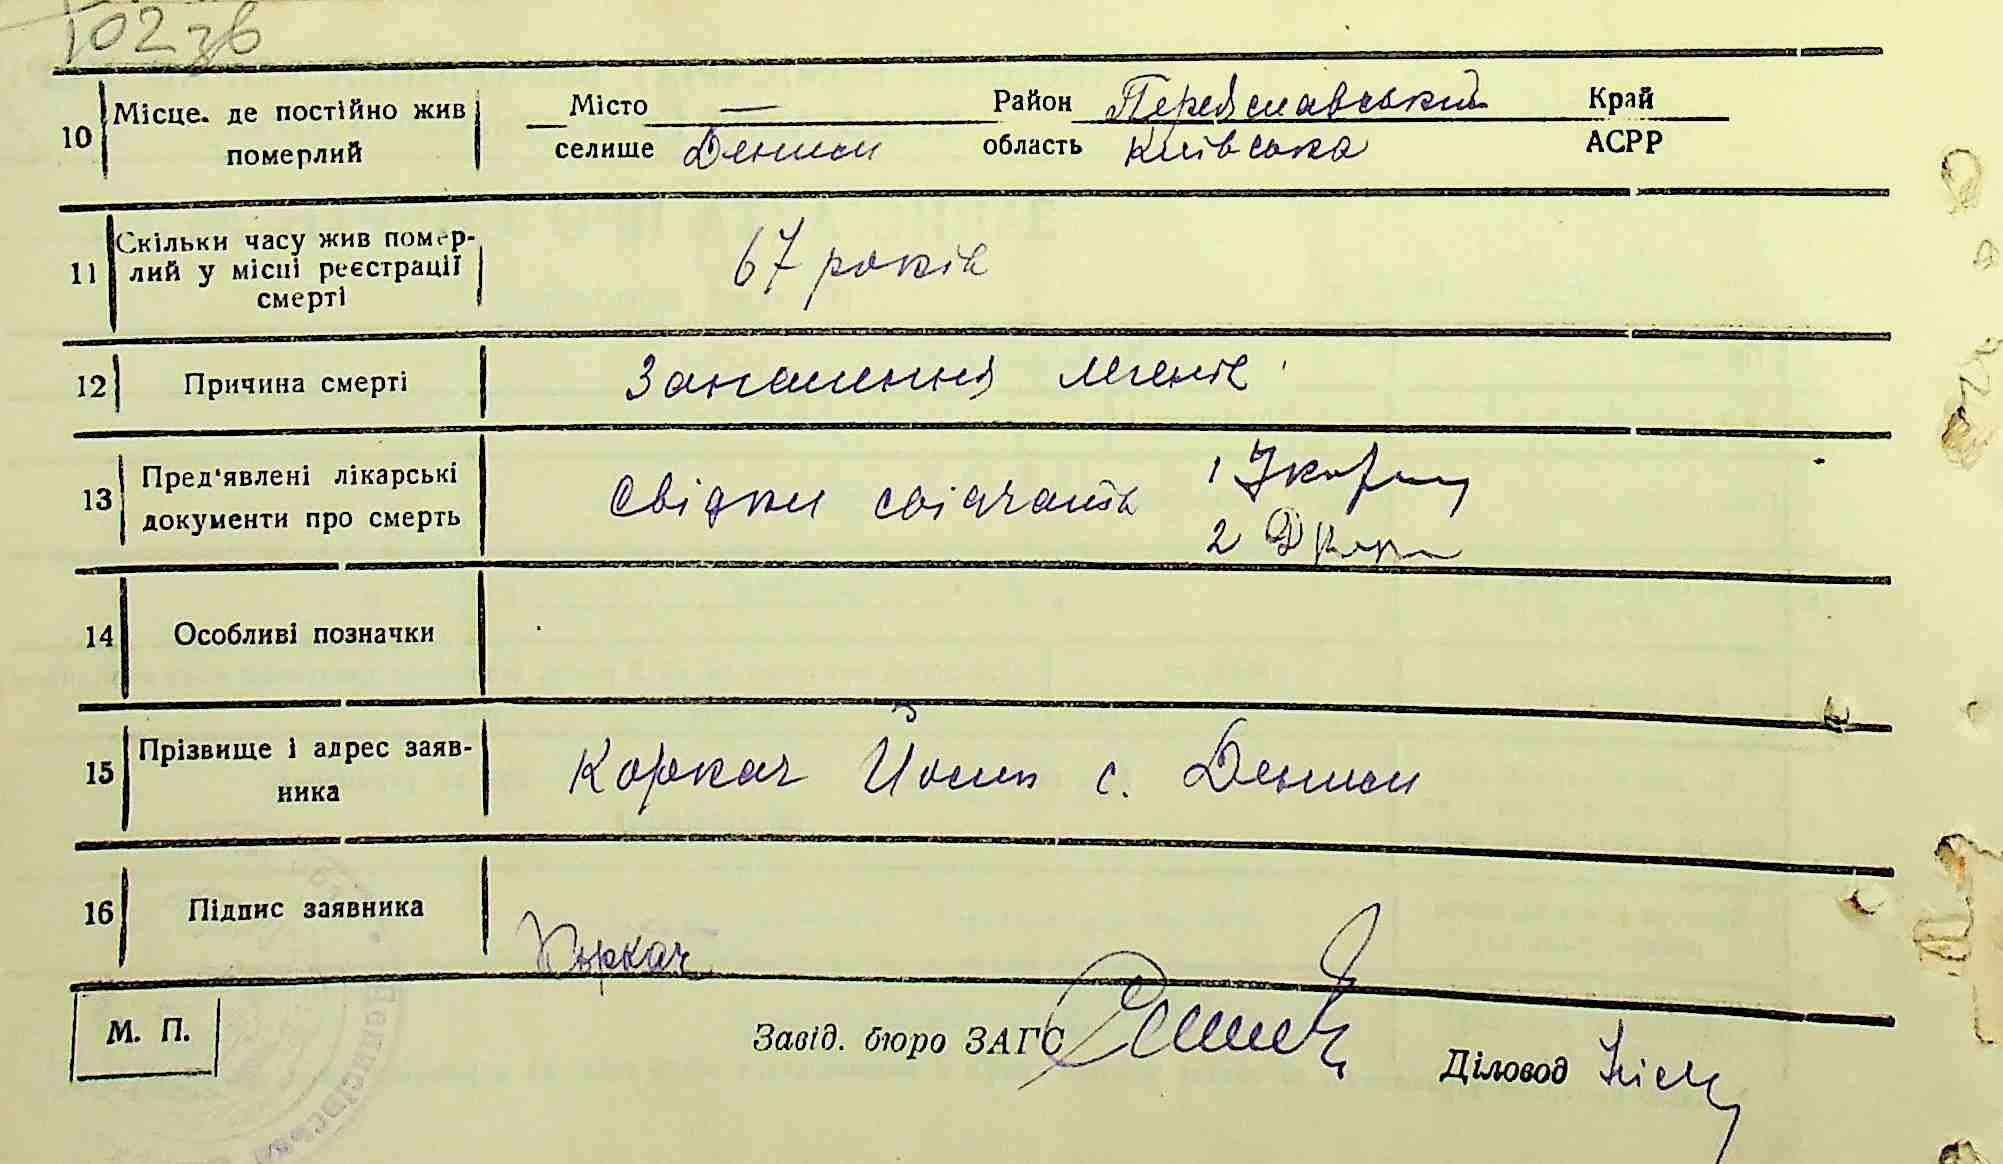 102 зв
10 Місце. де постійно жив померлий Місто — Район Переяславський Край
селище Дениси область Київська АСРР
11 Скільки часу жив помер-
лий у місці реєстрації
смерті 67 років
12 Причина смерті Запалення легенів
13 Пред'явлені лікарські
документи про смерть Свідки свідчать 1
2
14 Особливі позначки
15 Прізвище і адрес заяв-
ника Коркач Йосип с. Дениси
16 Підпис заявника Коркач
М. П. Завід. бюро ЗАГС Діловод